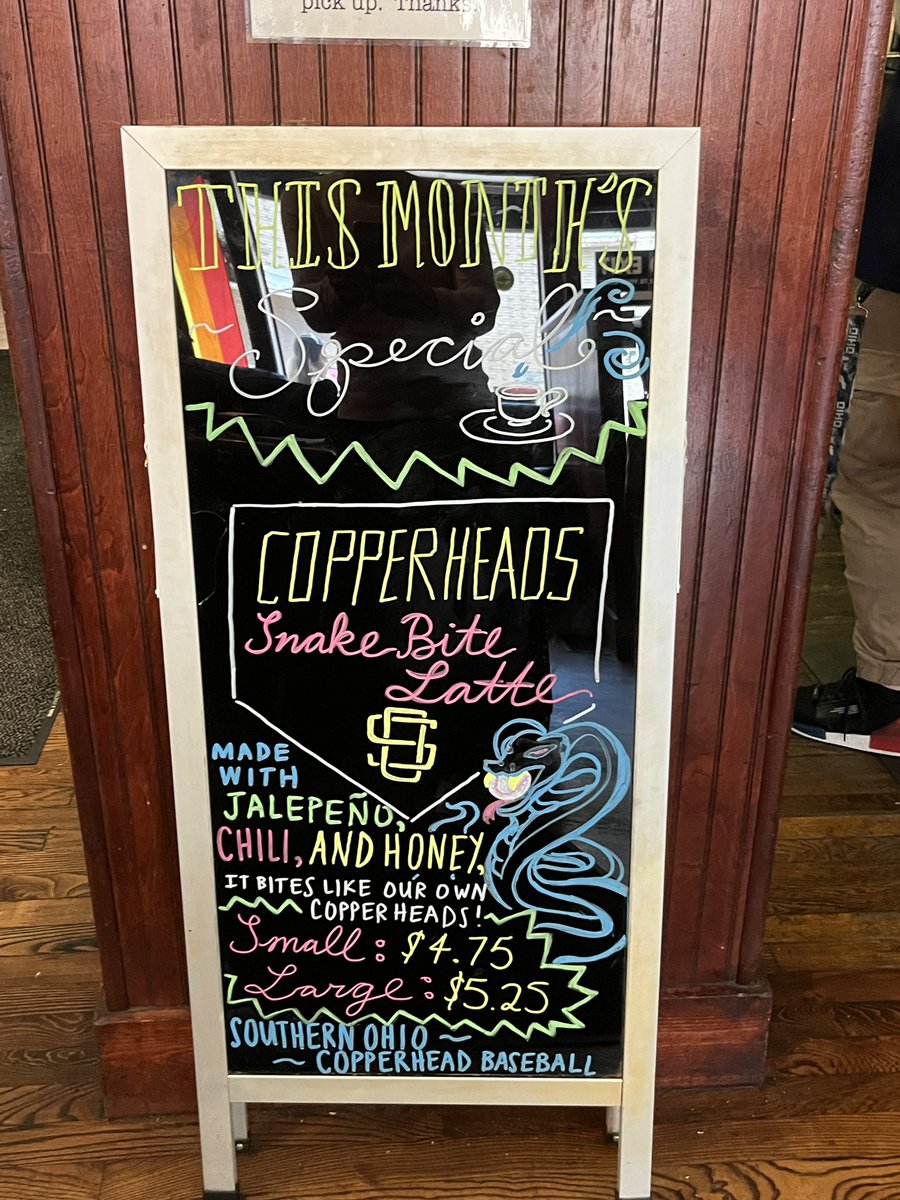 pick up. Thanks.
THIS MONTH'S
~ Special ~
COPPERHEADS
Snake Bite
Latte
MADE
WITH
JALEPEÑO,
CHILI, AND HONEY,
IT BITES LIKE OUR OWN
COPPERHEADS!
Small: $4.75
Large: $5.25
SOUTHERN OHIO ~
~ COPPERHEAD BASEBALL
OHIO
OHIO